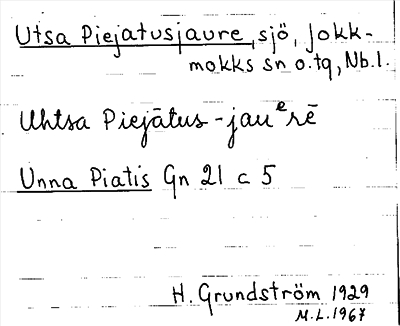 Utsa Piejatusjaure, sjö, Jokk-
mokks sn o. tq, Nb. l.
Uhtsa Piejātus-jauᵉrē
Unna Piatis Gn 21 c 5
H. Grundström 1929
M.L. 1967